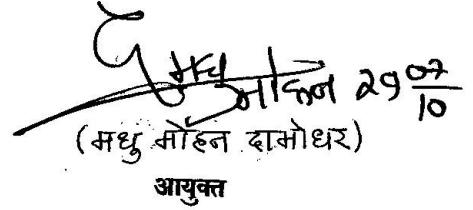 मधु
मोहन 29 07/10
(मधु मोहन दामोधर)
आयुक्त